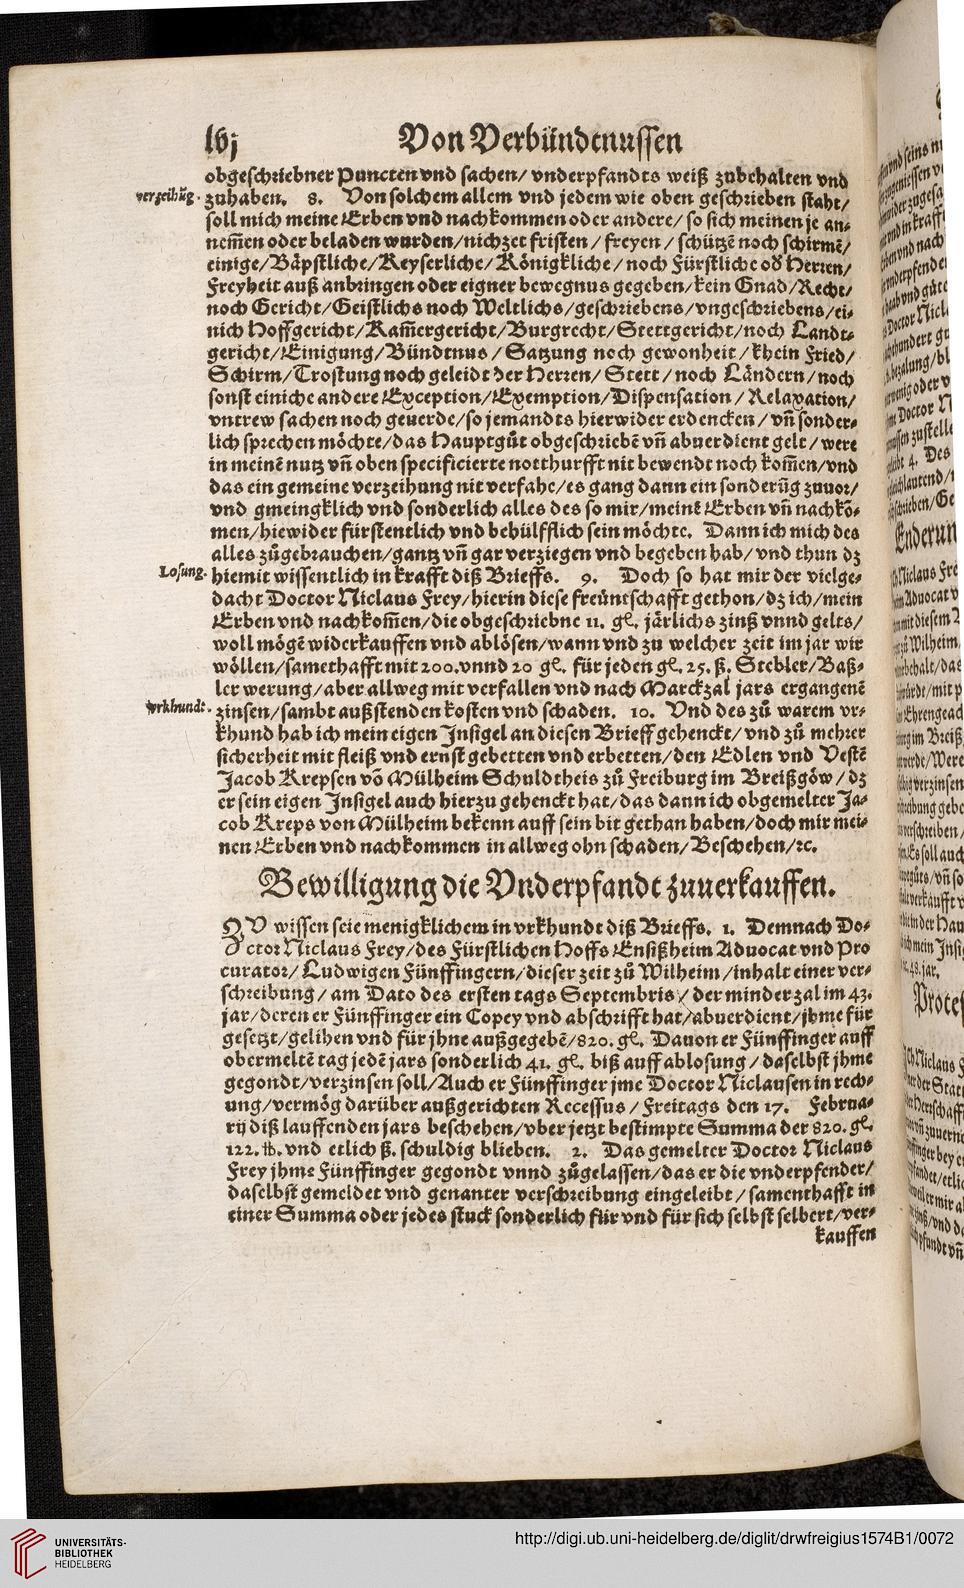 lvj Von Verbündtnussen
obgeschriebner Puncten vnd sachen/ vnderpfandts weiß zubehalten vnd
verzeihūg. zuhaben. 8. Von solchem allem vnd jedem wie oben geschrieben staht/
soll mich meine Erben vnd nachkommen oder andere/ so sich meinen je an-
nem̄en oder beladen wurden/nichzet fristen/ freyen/ schützē noch schirmē/
einige/Bäpstliche/Keyserliche/Königkliche/ noch Fürstliche od' Herren/
Freyheit auß anbringen oder eigner bewegnus gegeben/kein Gnad/Recht/
noch Gericht/Geistlichs noch Weltlichs/geschriebens/vngeschriebens/ei-
nich Hoffgericht/Kam̄ergericht/Burgrecht/Stettgericht/noch Landt-
gericht/Einigung/Bündtnus/ Satzung noch gewonheit/khein Fried/
Schirm/Trostung noch geleidt der Herren/ Stett/ noch Ländern/noch
sonst einiche andere Exception/Exemption/Dispensation/ Relaxation/
vntrew sachen noch geuerde/so jemandts hierwider erdencken/ vn̄ sonder-
lich sprechen möchte/das Hauptgůt obgeschriebē vn̄ abuerdient gelt/ were
in meinē nutz vn̄ oben specificierte notthurfft nit bewendt noch kom̄en/vnd
das ein gemeine verzeihung nit verfahe/es gang dann ein sonderūg zuuor/
vnd gmeingklich vnd sonderlich alles des so mir/meinē Erben vn̄ nachkō-
men/hiewider fürstentlich vnd behülfflich sein möchte. Dann ich mich des
alles zůgebrauchen/gantz vn̄ gar verziegen vnd begeben hab/ vnd thun dz
Losung. hiemit wissentlich in krafft diß Brieffs. 9. Doch so hat mir der vielge-
dacht Doctor Niclaus Frey/hierin diese freüntschafft gethon/dz ich/mein
Erben vnd nachkom̄en/die obgeschriebne 11. gl. järlichs zinß vnnd gelts/
woll mögē widerkauffen vnd ablösen/wann vnd zu welcher zeit im jar wir
wöllen/samethafft mit 200.vnnd 20 gl. für jeden gl. 25. ß. Stebler/Baß-
ler werung/aber allweg mit verfallen vnd nach Marckzal jars ergangenē
vrkhundt. zinsen/sambt außstenden kosten vnd schaden. 10. Vnd des zů warem vr-
khund hab ich mein eigen Insigel an diesen Brieff gehenckt/ vnd zů mehrer
sicherheit mit fleiß vnd ernst gebetten vnd erbetten/den Edlen vnd Vestē
Jacob Krepsen vō Mülheim Schuldtheis zů Freiburg im Breißgöw/ dz
er sein eigen Insigel auch hierzu gehenckt hat/das dann ich obgemelter Ja-
cob Kreps von Mülheim bekenn auff sein bit gethan haben/doch mir mei-
nen Erben vnd nachkommen in allweg ohn schaden/Beschehen/ꝛc.
Bewilligung die Vnderpfandt zuuerkauffen.
ZV wissen seie menigklichem in vrkhundt diß Brieffs. 1. Demnach Do-
ctor Niclaus Frey/des Fürstlichen Hoffs Ensißheim Aduocat vnd Pro
curator/ Ludwigen Fünffingern/dieser zeit zů Wilheim/inhalt einer ver-
schreibung/ am Dato des ersten tags Septembris/ der minder zal im 43.
jar/deren er Fünffinger ein Copey vnd abschrifft hat/abuerdient/jhme für
gesetzt/gelihen vnd für jhne außgegebē/820. gl. Dauon er Fünffinger auff
obermeltē tag jedē jars sonderlich 41. gl. biß auff ablosung/ daselbst jhme
gegondt/verzinsen soll/Auch er Fünffinger jme Doctor Niclausen in rech-
ung/vermög darüber außgerichten Recessus/ Freitags den 17. Februa-
rij diß lauffenden jars beschehen/vber jetzt bestimpte Summa der 820. gl.
122. ℔. vnd etlich ß. schuldig blieben. 2. Das gemelter Doctor Niclaus
Frey jhme Fünffinger gegondt vnnd zůgelassen/das er die vnderpfender/
daselbst gemeldet vnd genanter verschreibung eingeleibt/ samenthafft in
einer Summa oder jedes stuck sonderlich für vnd für sich selbst selbert/ver-
kauffen
UNIVERSITÄTS-
BIBLIOTHEK
HEIDELBERG
http://digi.ub.uni-heidelberg.de/diglit/drwfreigius1574B1/0072